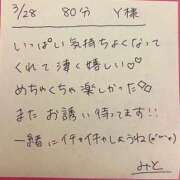 3/28 80分 Y様
いっぱい気持ちよくなって
くれて凄く嬉しい♡♡
めちゃくちゃ楽しかった◇◇
またお誘い待ってます!!
一緒にイチャイチャしようね(๑˃̵ᴗ˂̵)
みと